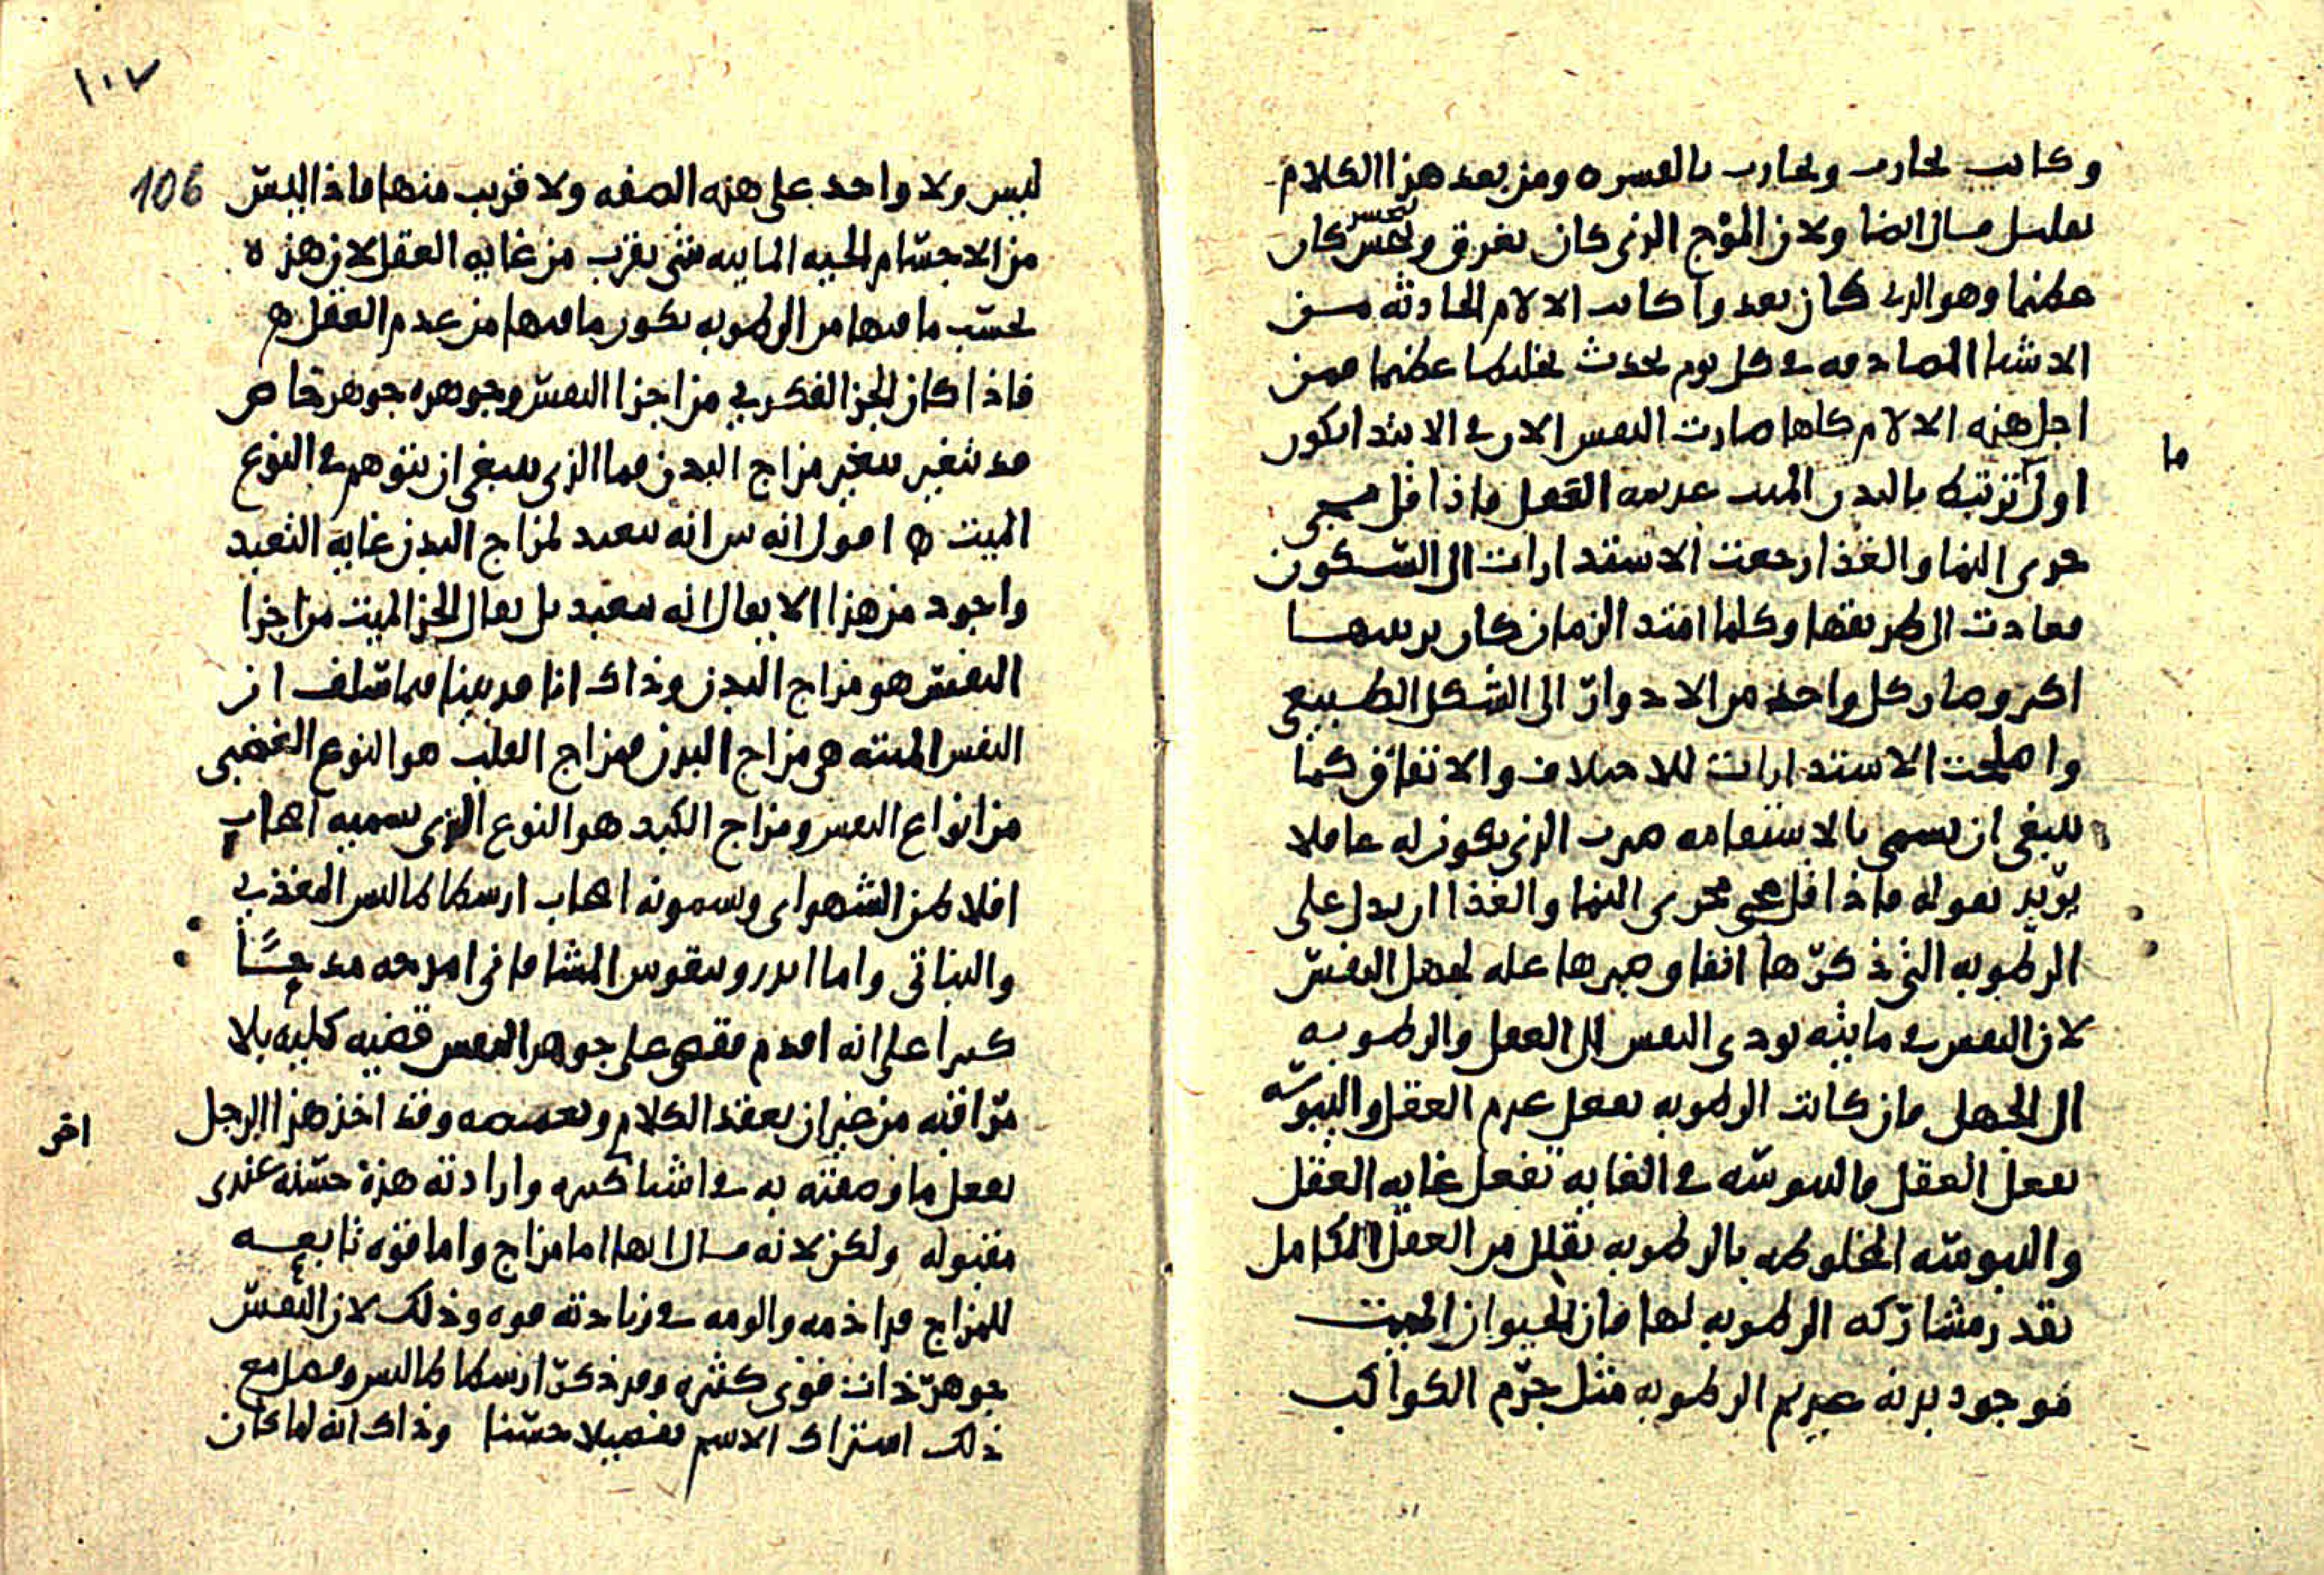 وكانت تجارب وتجارب بالقسره ومن بعد هذا الكلام
بقليل قال ايضا ولان الموج الذي كان يغرق ويحبس كان
يحبس
عظيما وهو الذي كان يغدوا كانت الالام الحادثه من
الاشيا المصادمه في كل يوم يحدث تخليطا عظيما فمن
اجل هذه الالام كلها صارت النفس الان في الابتدا يكون
ما
اول ترتبط بالبدن الميت عديمه العقل فاذا قل مجى
جرى النما والغذا رجعت الاستدارات الى السكون
فعادت الى طريقها وكلما امتد الزمان كان
اكثر وصار كل واحد من الادوار الى الشكل الطبيعي
واصلحت الاستدارات للاختلاف والاتفاق كما
ينبغي ان يسمى بالاستقامه صيرت الذي يكون له عاقلا
يريد بقوله فاذا قل مجى مجرى النما والغذا ان يدل على
الرطوبه التي ذكرها انفا وصيرها عله لجهل النفس
لان اليبس في مابيته يودى النفس الى العقل والرطوبه
الى الجهل فان كانت الرطوبه تفعل عدم العقل واليبوسه
تفعل العقل فاليبوسه في الغايه تفعل غايه العقل
واليبوسه المخلوطه بالرطوبه تقلل من العقل الكامل
بقدر مشاركه الرطوبه لها فان الحيوان الميت
موجود بدنه عديم الرطوبه مثل جرم الكواكب
١٠٧
106
ليس ولا واحد على هذه الصفه ولا قريب منها فاذا ليس
من الاجسام الحيه المايته شي يقرب من غايه العقل لان هذه
بحسب ما فيها من الرطوبه يكون ما فيها من عدم العقل ه
فاذا كان الجز الفكري من اجزا النفس وجوهره جوهر خاص
قد تغير بتغير مزاج البدن فما الذي ينبغي ان يتوهم في النوع
الميت ه اقول انه بين انه متعبد لمزاج البدن غاية التعبد
واجود من هذا الا يقال انه متعبد بل يقال الجز الميت من اجزا
النفس هو مزاج البدن وذاك انا قد بينا فيما سلف ان
النفس الميته هي مزاج البدن فمزاج القلب هو النوع الغضبي
من انواع النفس ومزاج الكبد هو النوع الذي يسميه اصحاب
افلاطن الشهواني ويسمونه اصحاب ارسطاطاليس المغذي
والنباتي واما اندرونيقوس المشا فاني امدحه مدحا
كثيرا على انه اقدم فقضى على جوهر النفس قضيه كليه بلا
مراقبه من غير ان يعقد الكلام ويعميه وقد اخذ هذا الرجل
اخر
يفعل ما وصفته به في اشيا كثيره وارادته هذه حسنه عندي
مقبوله ولكن لانه قال انها اما مزاج واما قوه تابعه
للمزاج قد اذمه والومه في زيادته قوه وذلك لان النفس
جوهر ذات قوى كثيره وقد ذكر ارسطاطاليس وفصل مع
ذلك اشتراك الاسم تفصيلا حسنا وذاك انه لما كان